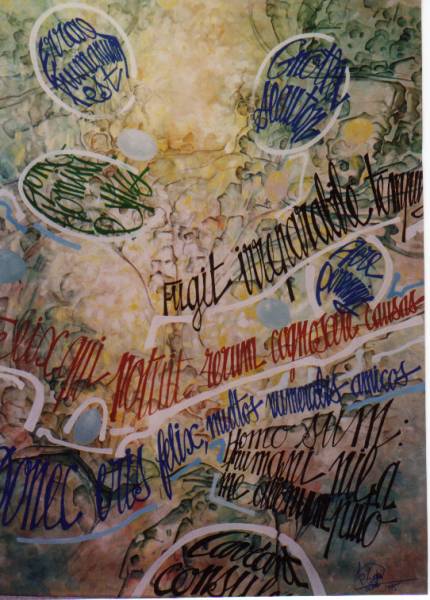 Errare
humanum
est
Gnothi
seauton
Fugit irreparabile tempus
Felix qui potuit rerum cognoscere causas
Donec eris felix, multos numerabis amicos
Homo sum:
humani nil a
me alienum puto
Caveant
consules